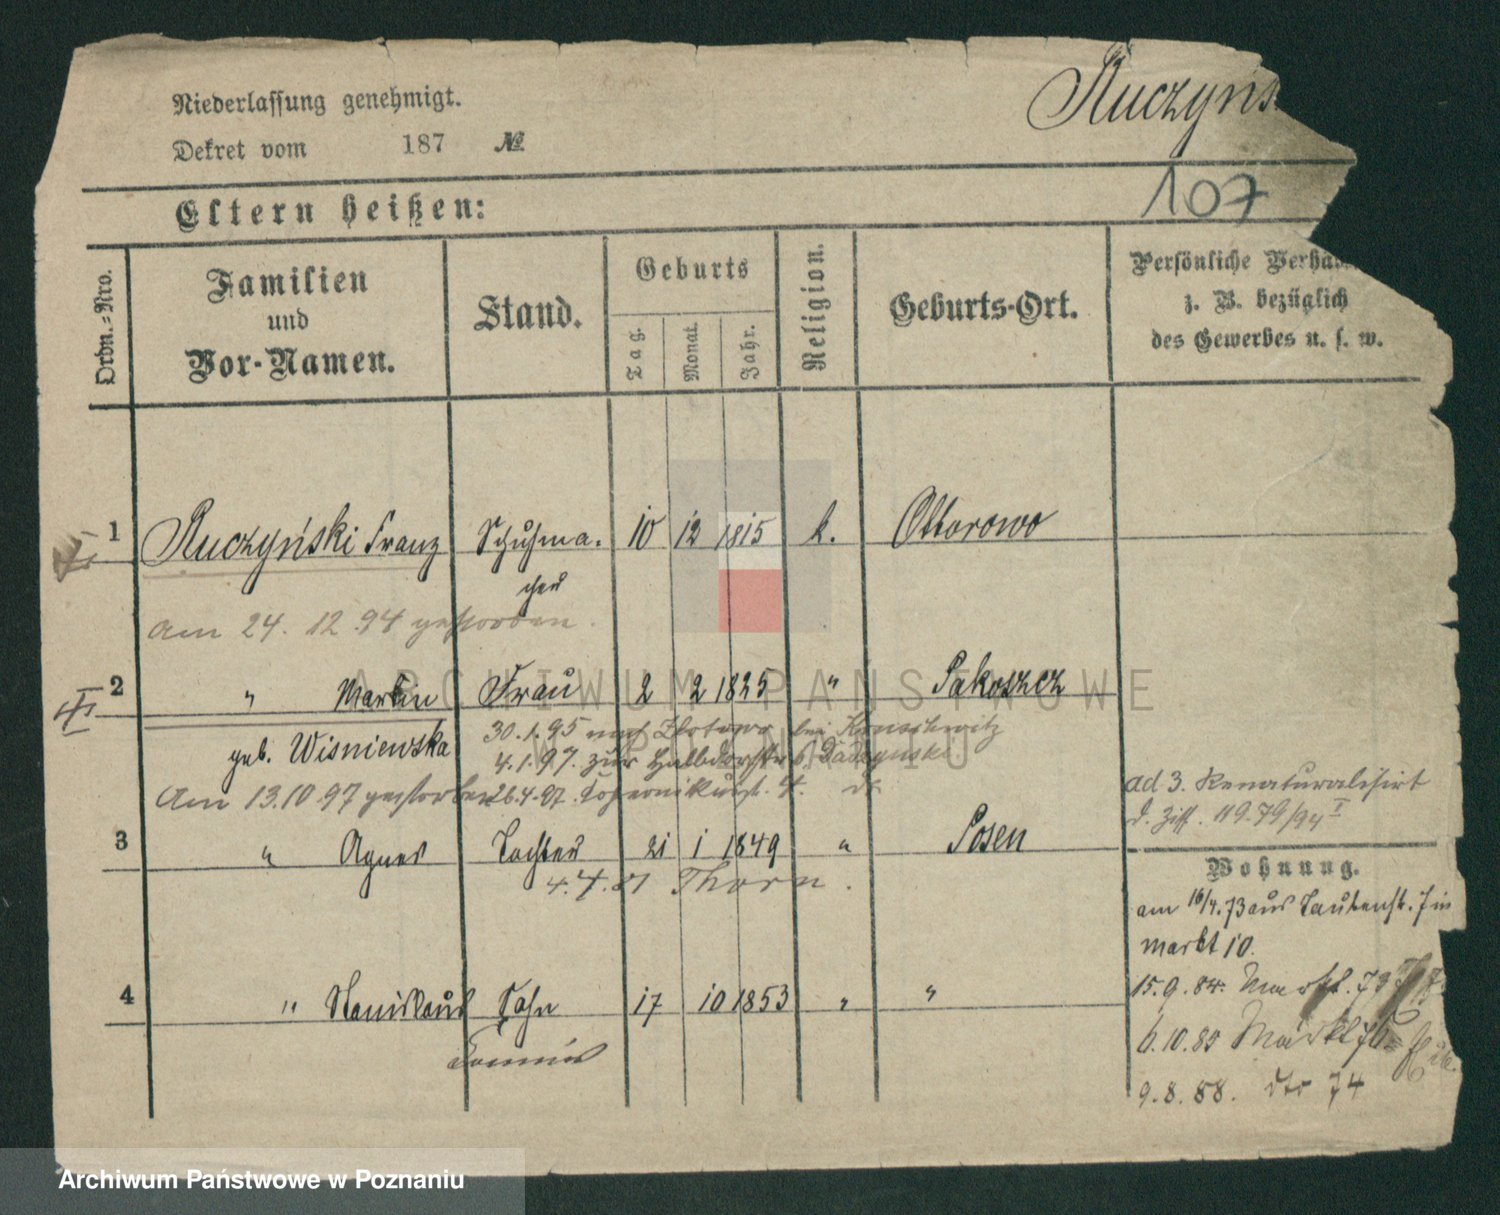 Niederlassung genehmigt.
Ruczyńs
Dekret vom 187 №
107
Eltern heißen:
Ordn.-Nro.
Familien
und
Vor-Namen.
Stand.
Geburts
Tag.
Monat.
Jahr.
Religion.
Geburts-Ort.
Persönliche Verhä
z. B. bezüglich
des Gewerbes u. s. w.
1 Ruczyński Franz Schuhma. 10 12 1815 k. Ottorowo
cher
am 24. 12. 94 gestorben.
2 " Frau 2 2 1825 " Pakoszcz
geb. Wisniewska
30.1.95 nach Zlotowo bei
4.1.97. zur
Am 13.10 97 gestorben
26.4.97.
ad 3. Renaturalisirt
d. Ziff. 119.79/94 I
3 " Agnes Tochter 21 1 1849 " Posen
4.4.81 Thorn.
Wohnung.
am 16/4.73 aus Taubenst. 7 in
markt 10.
4 " Stanislaus Sohn 17 10 1853 " "
Commis
15.9.84. Markt. 79
6.10.85 Markt 76
9.8.88. dto 74
ARCHIWUM PAŃSTWOWE
W POZNANIU
Archiwum Państwowe w Poznaniu